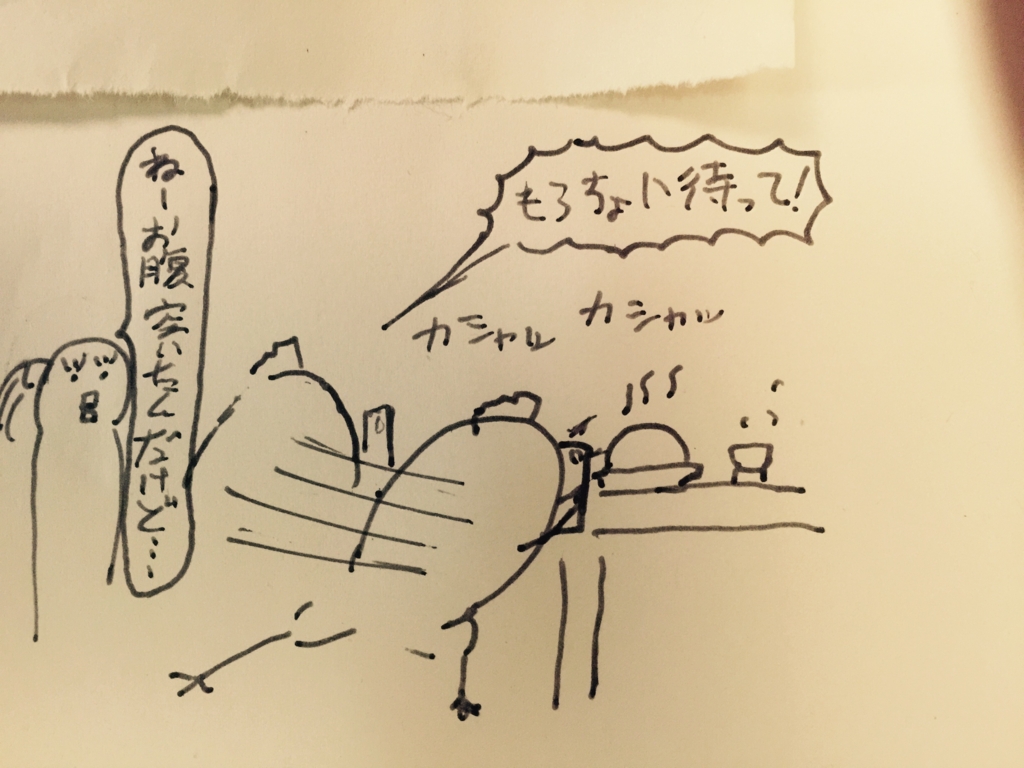 もうちょい待って!
カシャッ カシャッ
ねーお腹空いたんだけど…